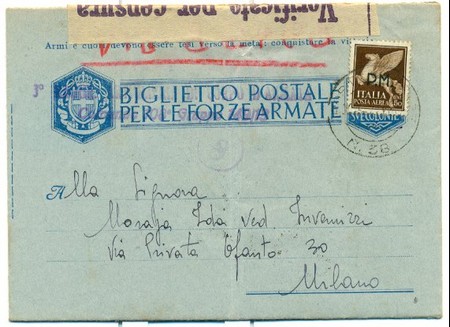 Verificato per censura
Armi e cuori devono essere tesi verso la meta: conquistare la
3°
BIGLIETTO POSTALE
PER LE FORZE ARMATE
DM.
ITALIA
POSTA AEREA
N. 38
Alla Signora
Ida ved. Invernizzi
Via Privata Ofanto 30
Milano